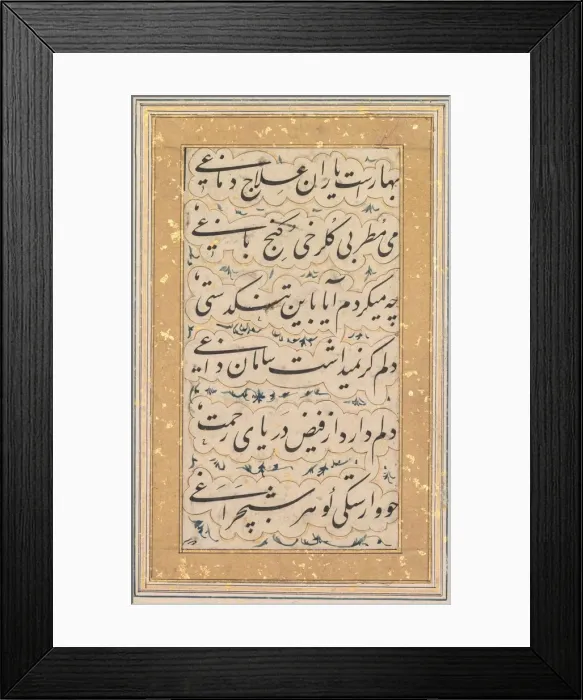 بهارست یاران علاج دماغی
می مطربی گلرخی کنج باغی
چه میکردم آیا باین تنگدستی
دلم گر نمیداشت سامان داغی
دلم دارد از فیض دریای رحمت
چو وارستگی